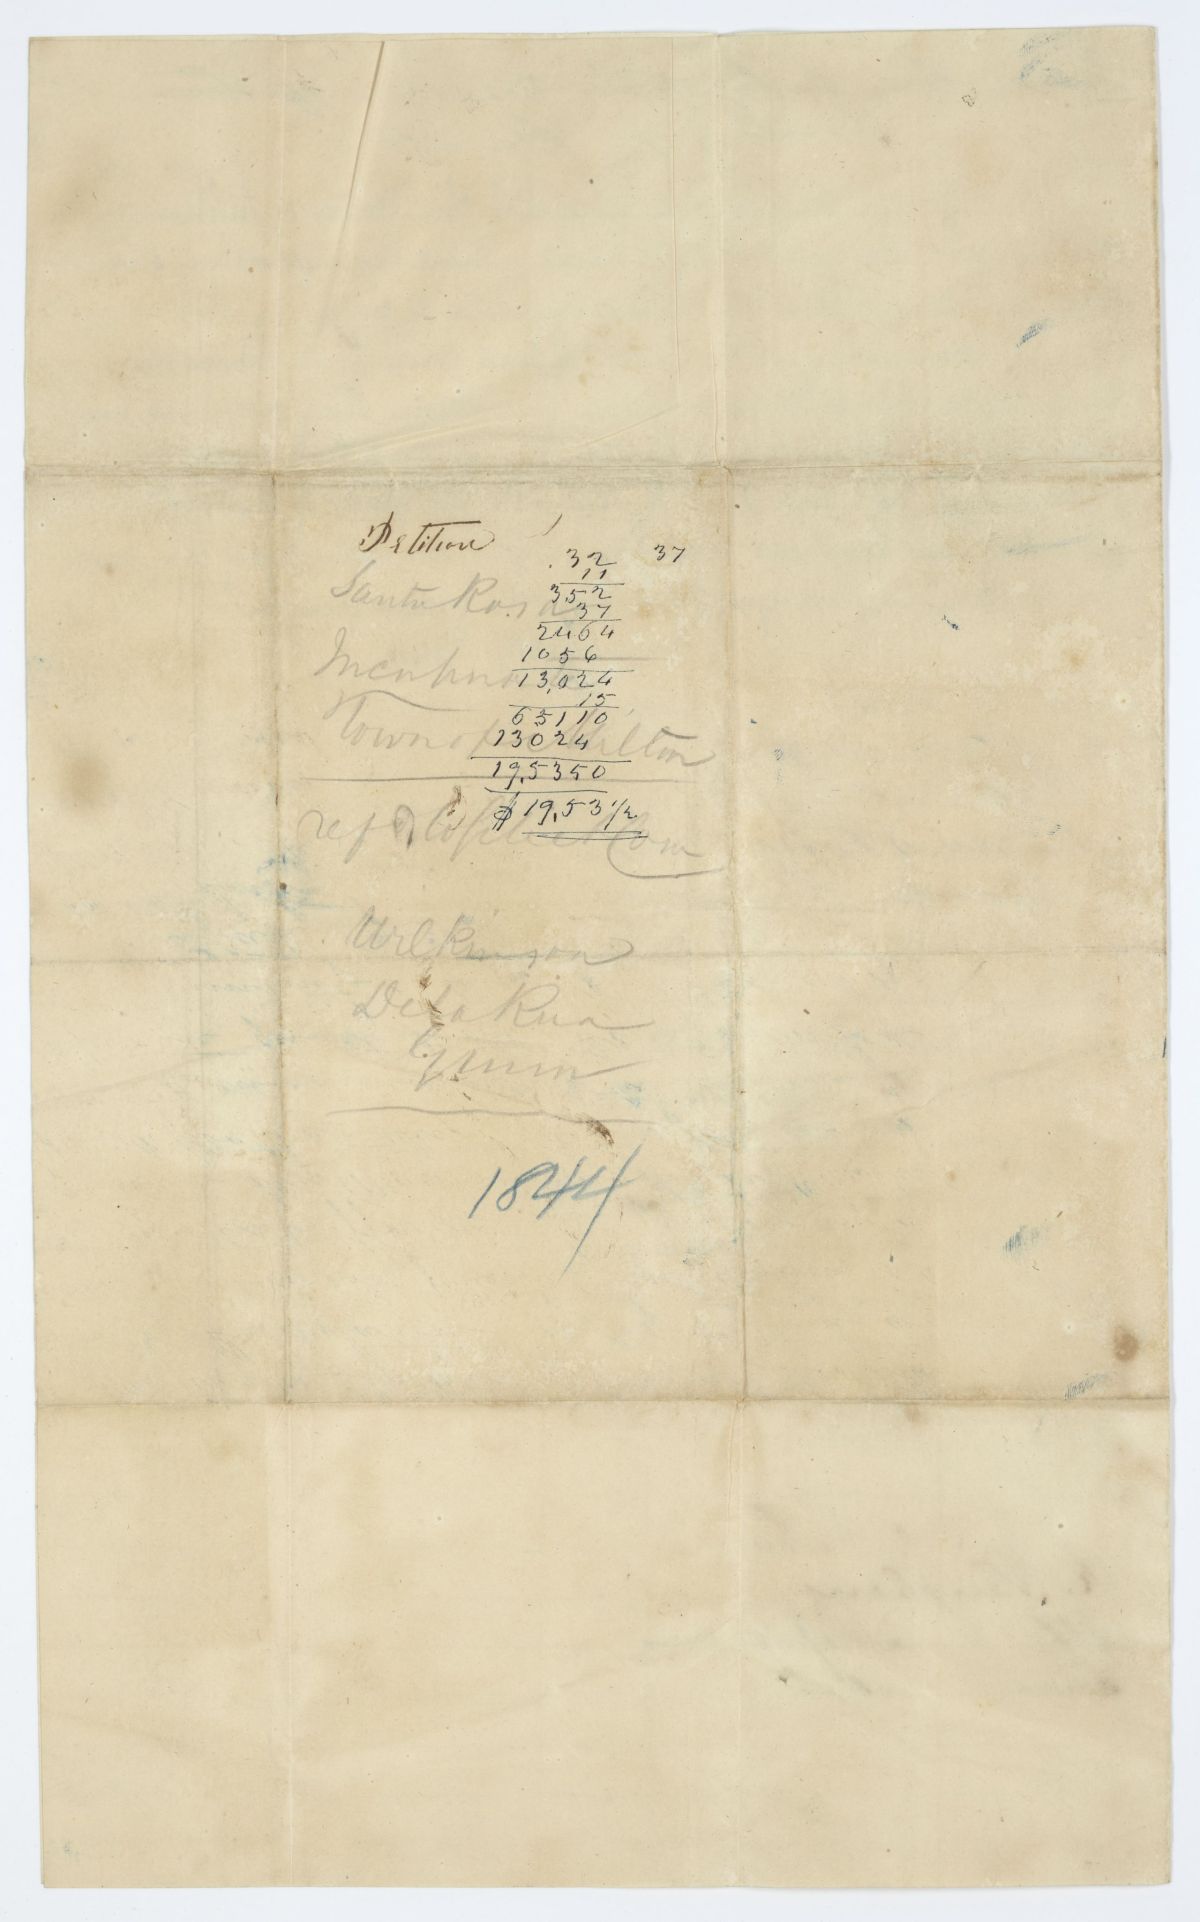 Petition
32 37
11
352
37
2464
1056
13,024
15
65110
13024
19,5350
$19,53 1/2
Santa Rosa
Incorporate
Town of Milton
ref to Select Com
Wilkinson
De la Rua
Gunn
1844